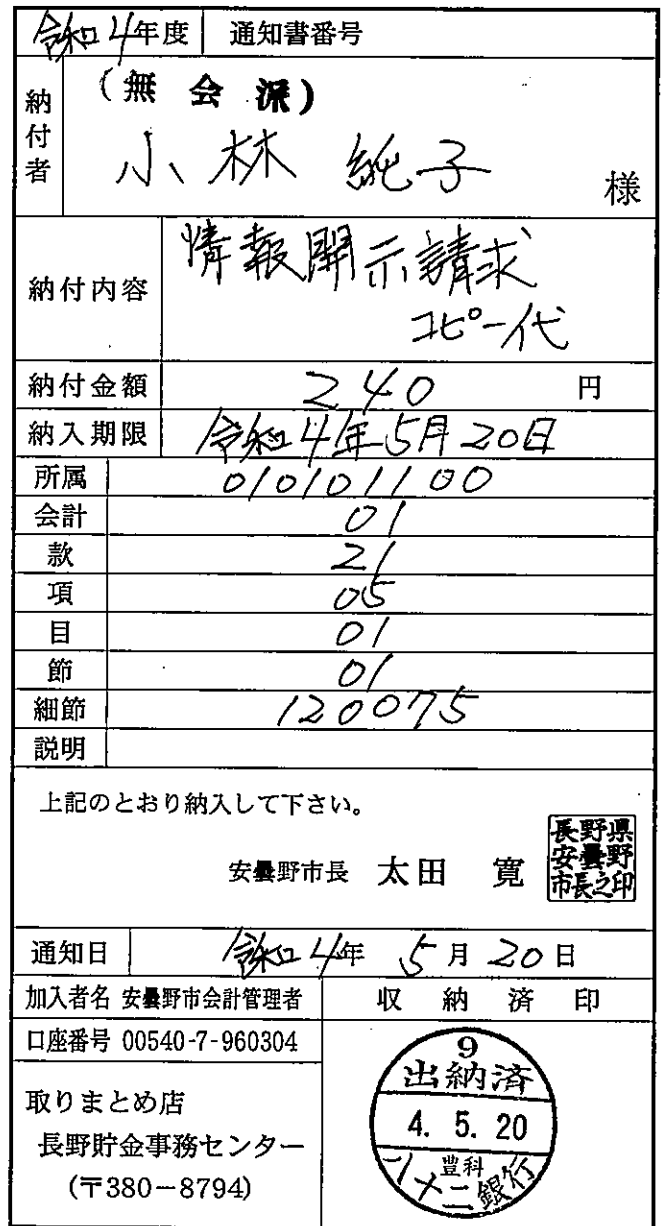 令和4年度 通知書番号
納付者 (無会派)
小林 純子 様
納付内容 情報開示請求
コピー代
納付金額 240 円
納入期限 令和4年5月20日
所属 010101100
会計 01
款 21
項 05
目 01
節 01
細節 120075
説明
上記のとおり納入して下さい。
安曇野市長 太田 寛
長野県
安曇野
市長之印
通知日 令和4年 5月20日
加入者名 安曇野市会計管理者 収納済印
口座番号 00540-7-960304
取りまとめ店
長野貯金事務センター
(〒380-8794)
9
出納済
4. 5. 20
豊科
八十二銀行